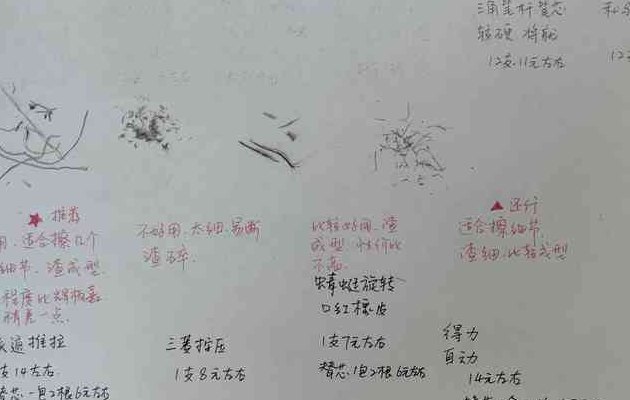 三角笔杆替芯
较硬 将就
12支11元左右
12支
★ 推荐
用、适合擦几个
细节、渣成型.
精差一点.
派通推拉
支14左右
替芯一包2根6元左右
不好用、太细、易断
渣碎.
三菱按压
1支8元左右
比较好用、渣
成型 性价比
不高.
蜻蜓旋转
口红橡皮
1支7元左右
替芯1包2根6元左右
▲ 还行
适合擦细节
渣细、比较成型
得力
自动
14元左右